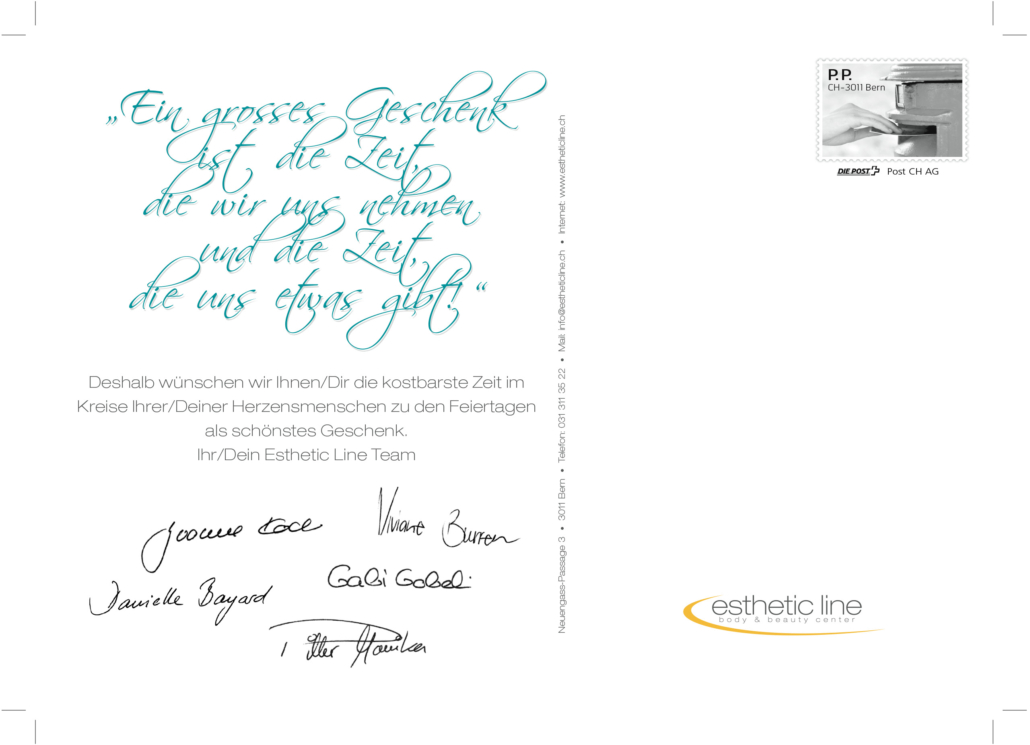 „Ein grosses Geschenk
ist die Zeit,
die wir uns nehmen
und die Zeit,
die uns etwas gibt!“
Deshalb wünschen wir Ihnen/Dir die kostbarste Zeit im
Kreise Ihrer/Deiner Herzensmenschen zu den Feiertagen
als schönstes Geschenk.
Ihr/Dein Esthetic Line Team
Viviane Burren
Danielle Bayard
Gabi Gobeli
Neuengass-Passage 3 • 3011 Bern • Telefon: 031 311 35 22 • Mail: info@estheticline.ch • Internet: www.estheticline.ch
P.P.
CH-3011 Bern
DIE POST Post CH AG
esthetic line
body & beauty center